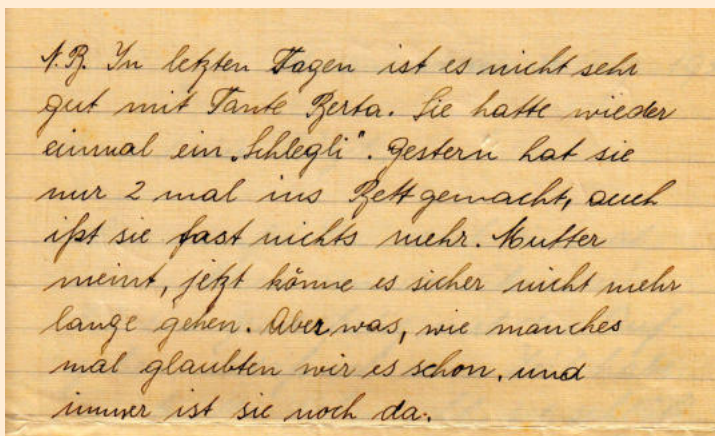 N.B. In letzten Tagen ist es nicht sehr
gut mit Tante Berta. Sie hatte wieder
einmal ein „Schlegli". Gestern hat sie
nur 2 mal ins Bett gemacht, auch
ißt sie fast nichts mehr. Mutter
meint, jetzt könne es sicher nicht mehr
lange gehen. Aber was, wie manches
mal glaubten wir es schon, und
immer ist sie noch da.